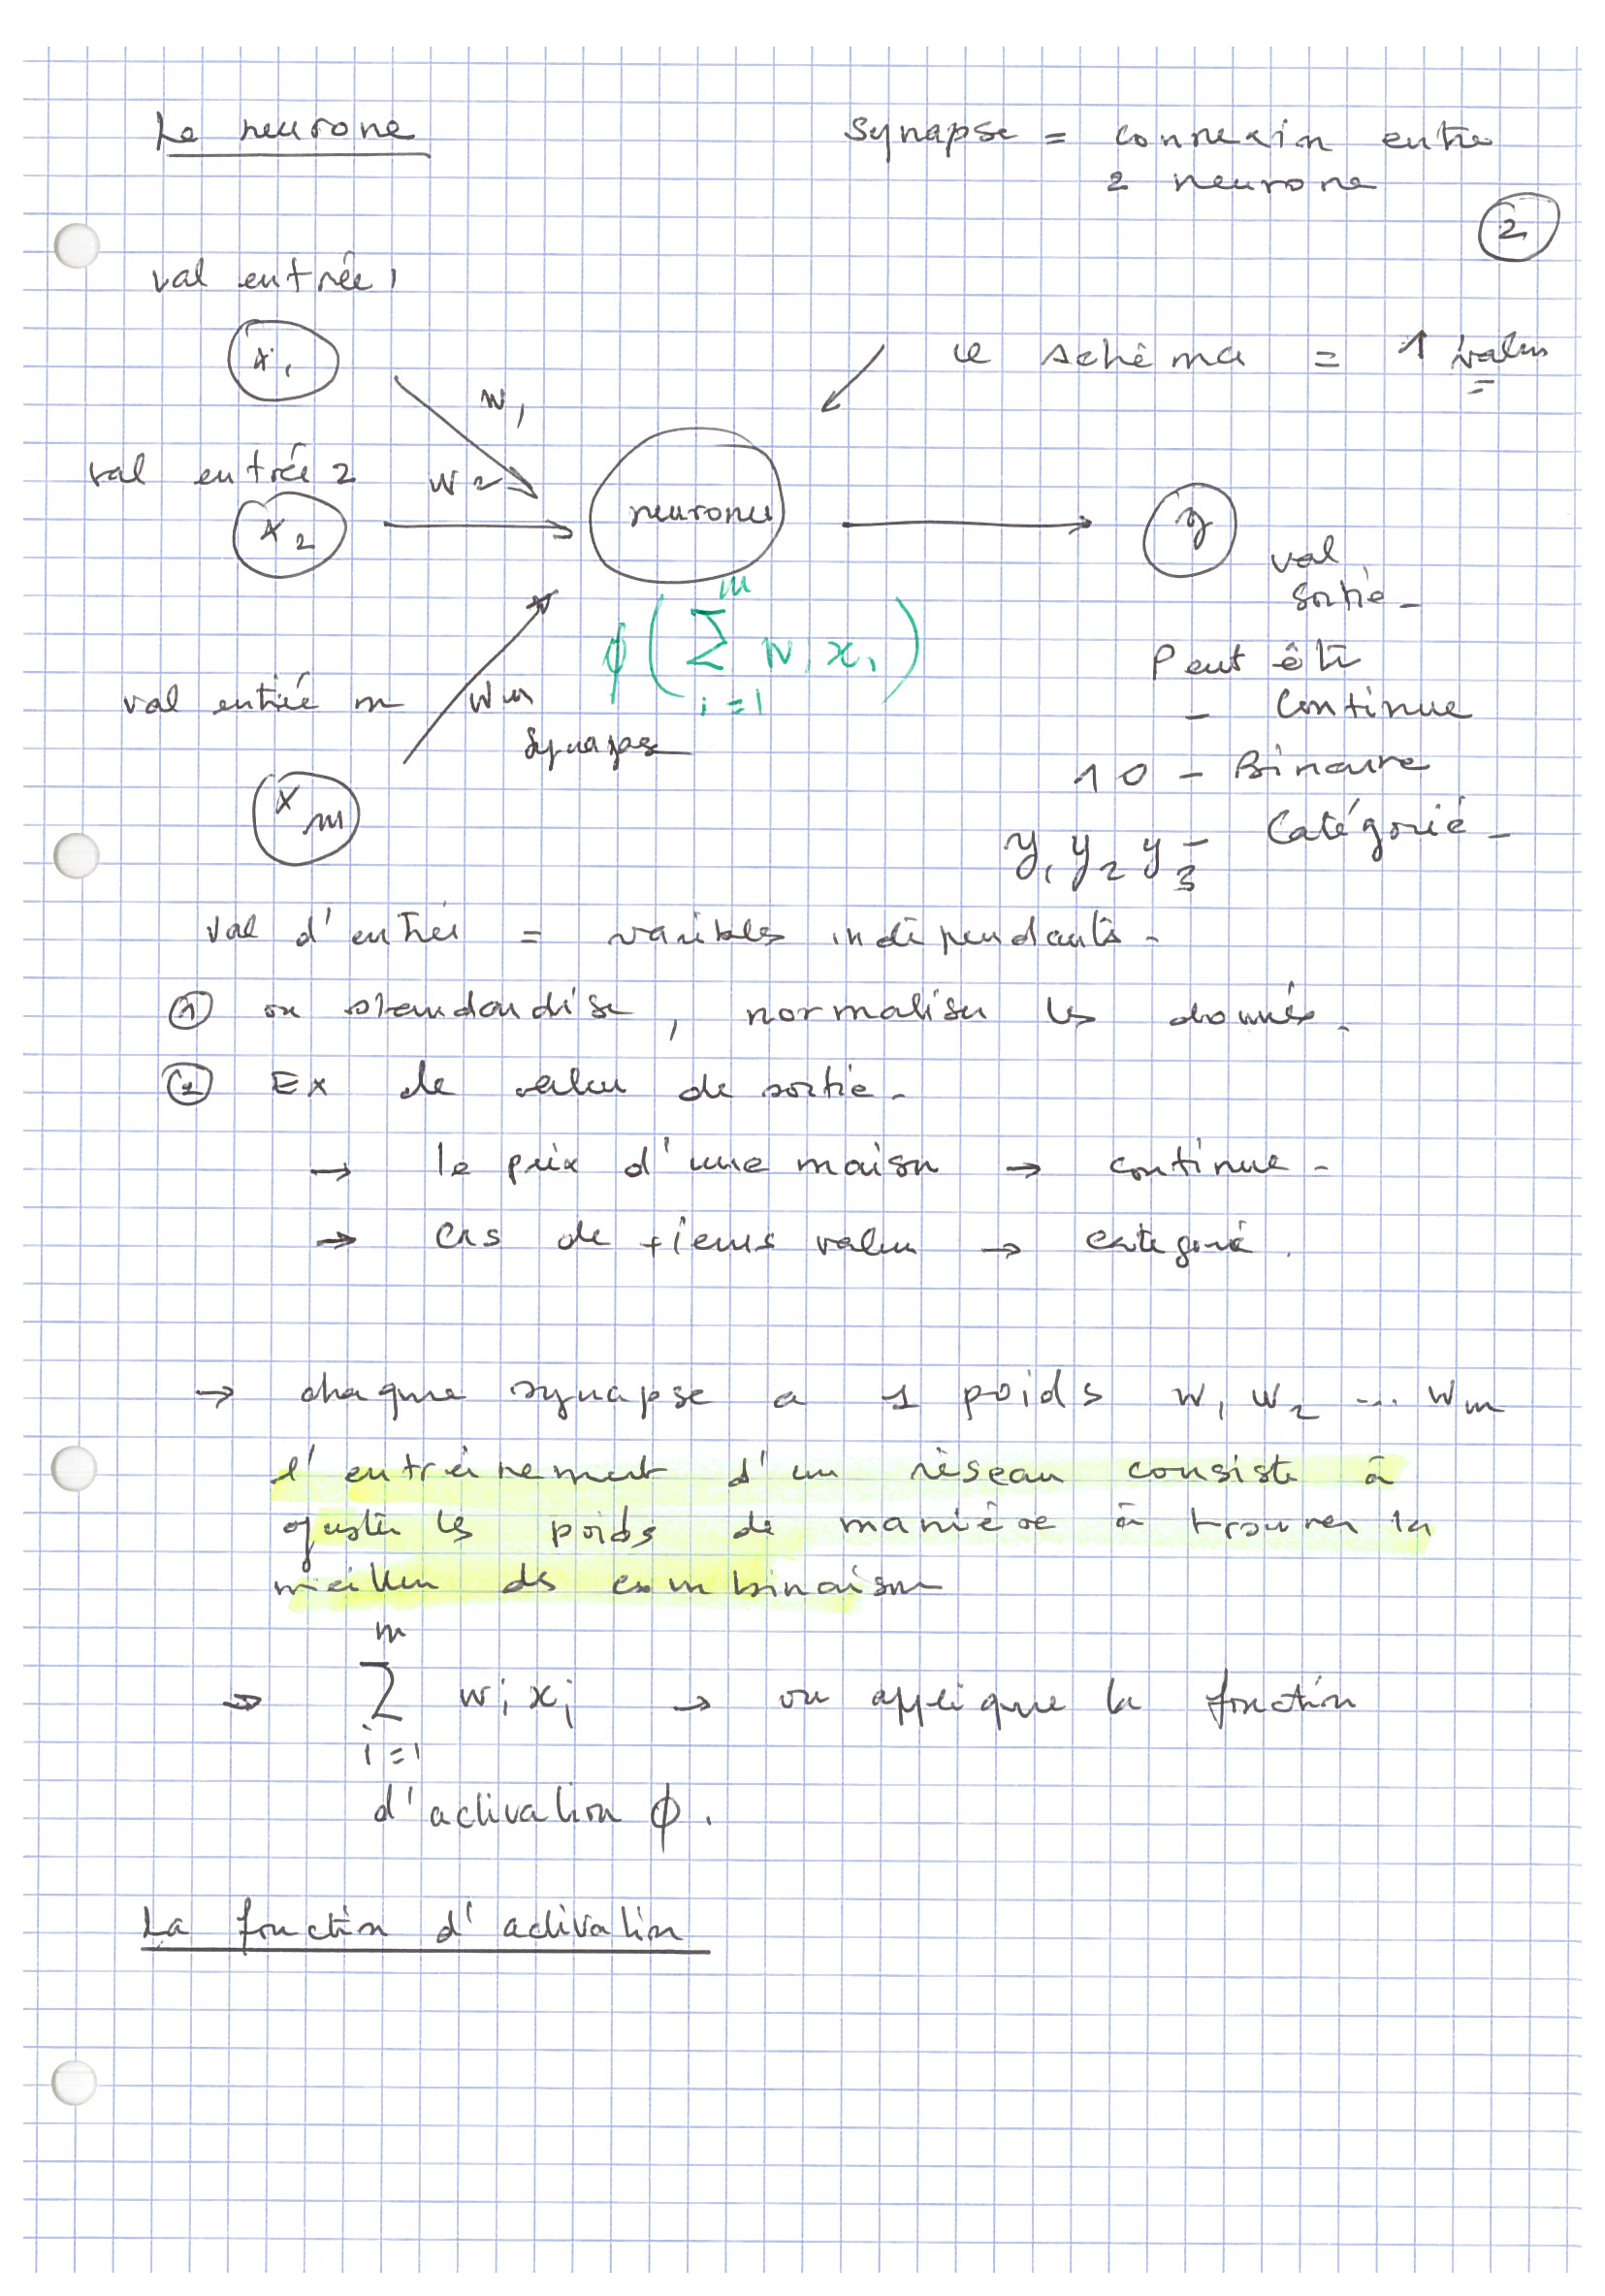 Le neurone
synapse = connexin entre
2 neurone
2
val entrée 1
x1
w1
ce schéma = 1 valeu
val entrée 2
w2
x2
neurone
y
val
sortie -
ϕ(∑ i=1 m wi xi)
Peut être
- continue
val entrée m
wm
synapse
10 - Binaire
xm
y1 y2 y3 - Catégorie -
val d'entrée = varibles indépendants -
① on standardise, normaliser les données.
② Ex de valeu de sortie -
→ le prix d'une maison → continue -
→ Cas de +ieurs valeu → catégorie.
→ chaque synapse a 1 poids w1 w2 ... wm
l'entrainement d'un réseau consiste à
ajuster les poids de manière à trouver la
meilleu des combinaison
→ ∑ i=1 m wi xi → on applique la fonction
d'activation ϕ.
La fonction d'activation